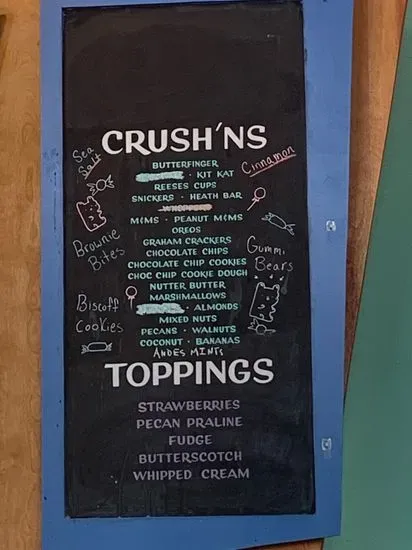 CRUSH'NS
Sea
Salt
Cinnamon
BUTTERFINGER
· KIT KAT
REESES CUPS
SNICKERS · HEATH BAR
WHOPPERS
M&MS · PEANUT M&MS
OREOS
GRAHAM CRACKERS
CHOCOLATE CHIPS
CHOCOLATE CHIP COOKIES
CHOC CHIP COOKIE DOUGH
NUTTER BUTTER
MARSHMALLOWS
· ALMONDS
MIXED NUTS
PECANS · WALNUTS
COCONUT · BANANAS
ANDES MINTS
Brownie
Bites
Gummi
Bears
Biscoff
Cookies
TOPPINGS
STRAWBERRIES
PECAN PRALINE
FUDGE
BUTTERSCOTCH
WHIPPED CREAM